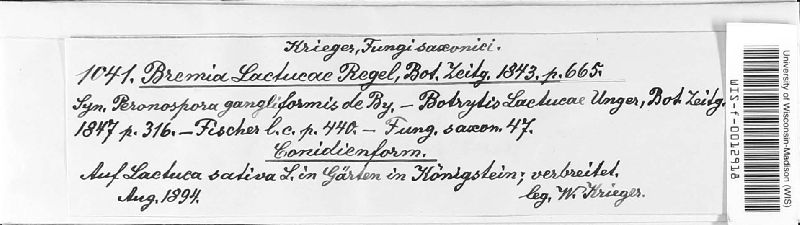 Krieger, Fungi saxonici.
1041. Bremia Lactucae Regel, Bot. Zeitg. 1843. p. 665.
Syn. Peronospora gangliformis de By, – Botrytis Lactucae Unger, Bot. Zeitg.
1847 p. 316. – Fischer l. c. p. 440. – Fung. saxon. 47.
Conidienform.
Auf Lactuca sativa L. in Gärten in Königstein; verbreitet.
Aug. 1894. leg. W. Krieger.
WIS-f-0012918
University of Wisconsin-Madison (WIS)